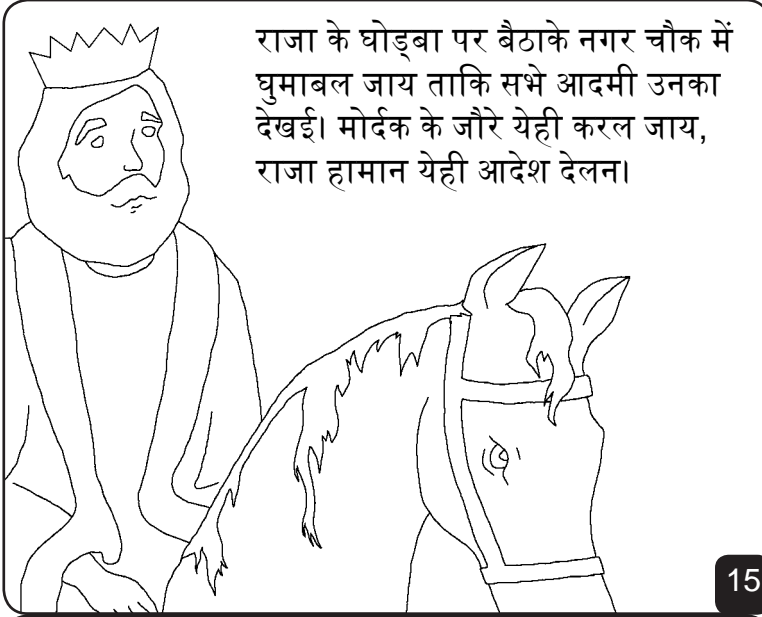 राजा के घोड़बा पर बैठाके नगर चौक में
घुमाबल जाय ताकि सभे आदमी उनका
देखई। मोर्दक के जौरे येही करल जाय,
राजा हामान येही आदेश देलन।
15